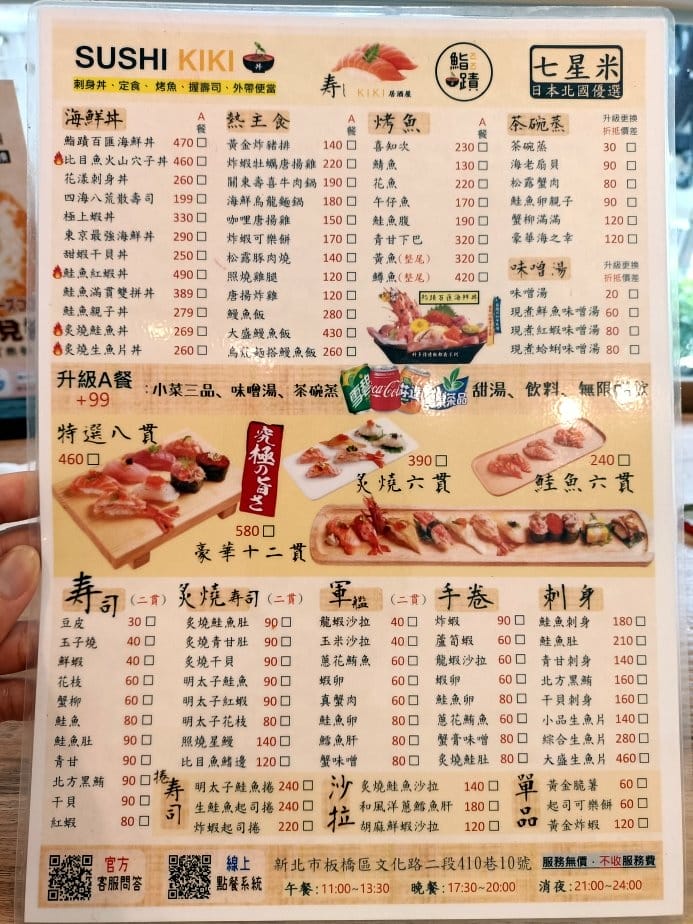 SUSHI KIKI
刺身丼、定食、烤魚、握壽司、外帶便當
寿し KIKI 居酒屋
鮨蹟
七星米
日本北國優選
海鮮丼 A餐
鮨蹟百匯海鮮丼 470
比目魚火山穴子丼 460
花漾刺身丼 260
四海八荒散壽司 199
極上蝦丼 330
東京最強海鮮丼 290
甜蝦干貝丼 250
鮭魚紅蝦丼 490
鮭魚滿貫雙拼丼 389
鮭魚親子丼 279
炙燒鮭魚丼 269
炙燒生魚片丼 260
熱主食 A餐
黃金炸豬排 140
炸蝦牡蠣唐揚雞 220
關東壽喜牛肉鍋 190
海鮮烏龍麵鍋 180
咖哩唐揚雞 150
炸蝦可樂餅 170
松露豚肉燒 140
照燒雞腿 120
唐揚炸雞 120
鰻魚飯 280
大盛鰻魚飯 430
烏龍麵搭鰻魚飯 260
烤魚 A餐
喜知次 230
鯖魚 130
花魚 220
午仔魚 170
鮭魚腹 190
青甘下巴 320
黃魚(整尾) 320
鱒魚(整尾) 420
鮨蹟百匯海鮮丼
茶碗蒸 升級更換 折抵價差
茶碗蒸 30
海老扇貝 90
松露蟹肉 80
鮭魚卵親子 90
蟹柳滿滿 120
豪華海之幸 120
味噌湯 升級更換 折抵價差
味噌湯 20
現煮鮮魚味噌湯 60
現煮紅蝦味噌湯 80
現煮蛤蜊味噌湯 80
升級A餐 +99 :小菜三品、味噌湯、茶碗蒸 甜湯、飲料、無限暢飲
雪碧
Coca-Cola
茶品
特選八貫
460
究極の旨さ
390
炙燒六貫
240
鮭魚六貫
580
豪華十二貫
寿司(二貫)
豆皮 30
玉子燒 40
鮮蝦 40
花枝 60
蟹柳 60
鮭魚 80
鮭魚肚 90
青甘 90
北方黑鮪 90
干貝 90
紅蝦 80
炙燒寿司(二貫)
炙燒鮭魚肚 90
炙燒青甘肚 90
炙燒干貝 90
明太子鮭魚 90
明太子紅蝦 90
明太子花枝 80
照燒星鰻 140
比目魚鰭邊 120
軍艦(二貫)
龍蝦沙拉 40
玉米沙拉 40
蔥花鮪魚 60
蝦卵 60
真蟹肉 60
鮭魚卵 80
鱈魚肝 80
蟹味噌 80
手卷
炸蝦 90
蘆筍蝦 60
龍蝦沙拉 60
蝦卵 60
鮭魚卵 90
蔥花鮪魚 60
蟹膏味噌 80
炙燒鮭肚 80
刺身
鮭魚刺身 180
鮭魚肚 210
青甘刺身 140
北方黑鮪 160
干貝刺身 160
小品生魚片 140
綜合生魚片 280
大盛生魚片 460
捲寿司
明太子鮭魚捲 240
生鮭魚起司捲 240
炸蝦起司捲 220
沙拉
炙燒鮭魚沙拉 140
和風洋蔥鱈魚肝 180
胡麻鮮蝦沙拉 120
單品
黃金脆薯 60
起司可樂餅 60
黃金炸蝦 120
官方
客服問答
線上
點餐系統
新北市板橋區文化路二段410巷10號 服務無價·不收服務費
午餐:11:00~13:30 晚餐:17:30~20:00 消夜:21:00~24:00